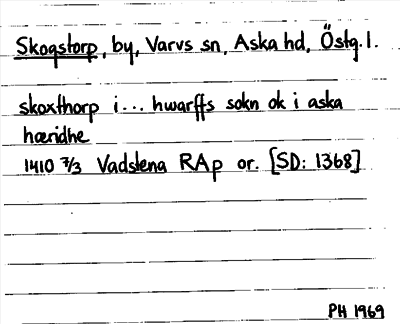 Skogstorp, by, Varvs sn, Aska hd, Östg. l.
skoxthorp i... hwarffs sokn ok i aska
hæridhe
1410 7/3 Vadstena RAp or. [SD: 1368]
PH 1969